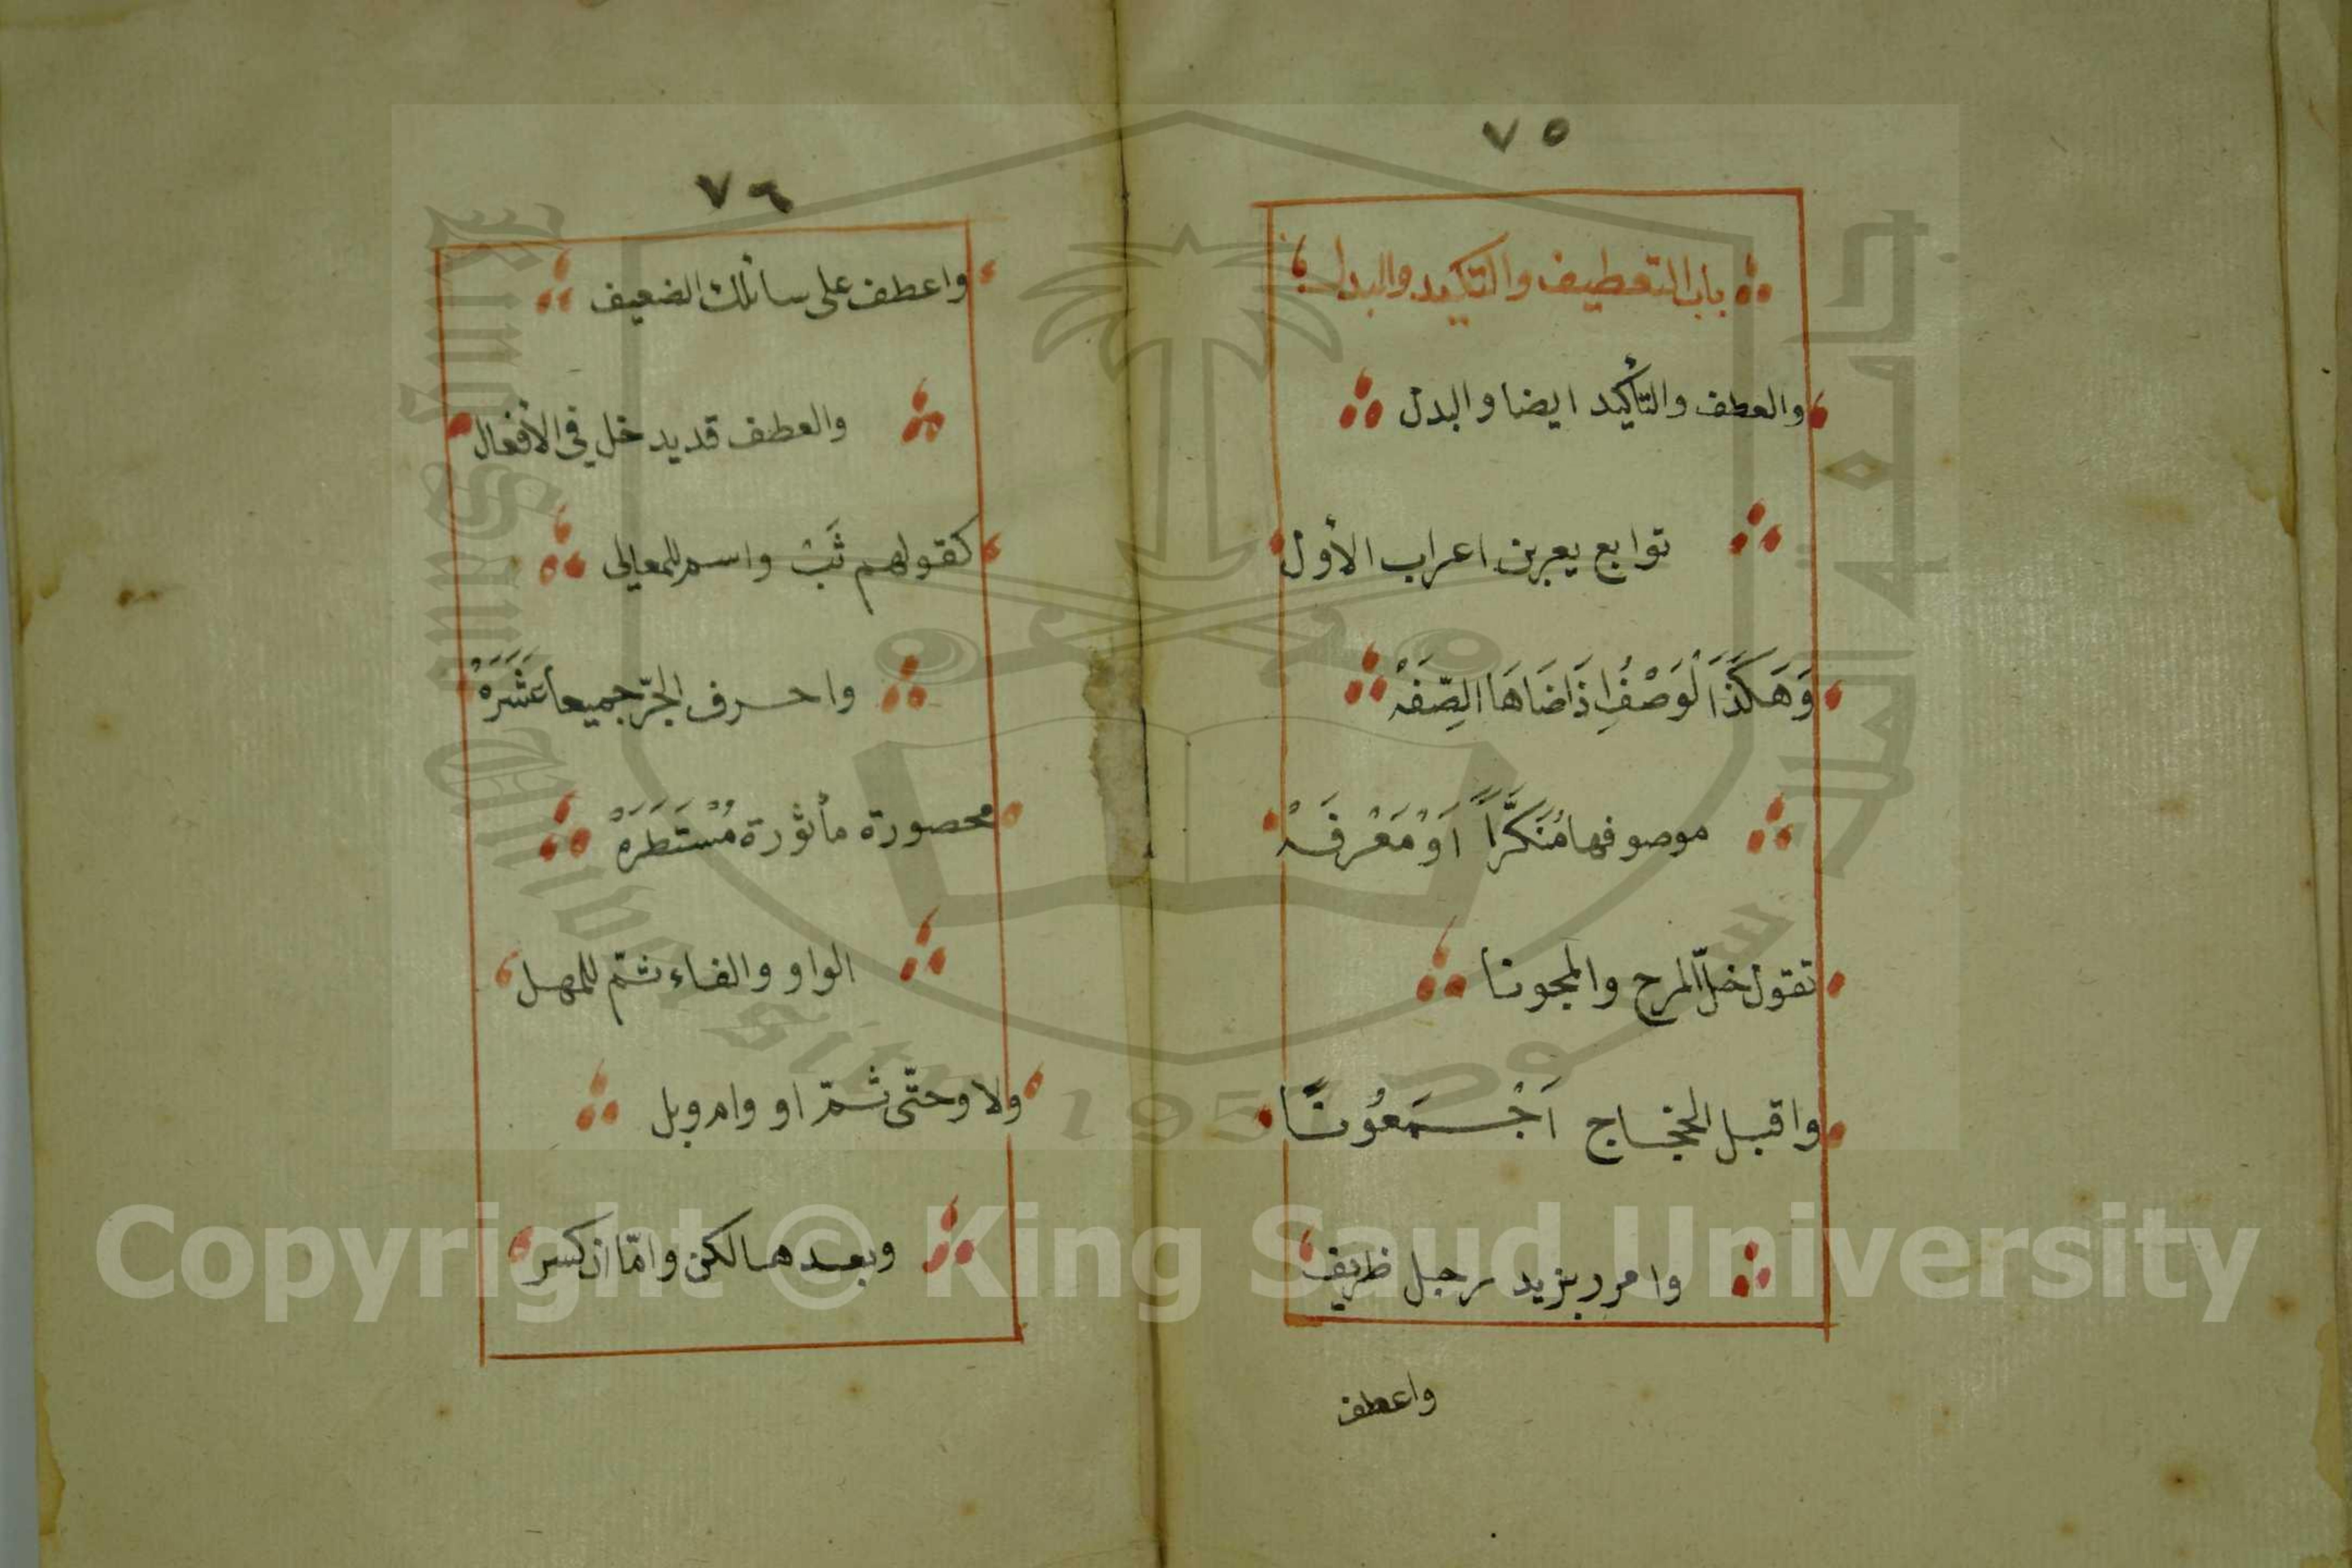 ٧٥
باب التعطيف والتاكيد والبدل
والعطف والتأكيد ايضا والبدل
توابع يعربن اعراب الأول
وَهَكَذَا لْوَصْفُ اِذَا ضَاهَا الصِّفَهْ
موصوفها مُنَكَّراً اَوْ مَعْرِفَهْ
تقول خلّ المزح والمجونا
واقبل الحجاج اَجْمَعُونَا
وامرر بزيد رجل ظريف
واعطف
٧٦
واعطف على سائلك الضعيف
والعطف قد يدخل في الأفعال
كقولهم ثَبْ واسم للمعالى
واحرف الجرّ جميعا عَشَرَهْ
محصورة مأثورة مُسْتَطَرَهْ
الواو والفاء ثمّ للمهل
ولا وحتّى ثمّ او وام وبل
وبعدها لكن وامّا ان كسر
Copyright © King Saud University
King Saud University
1957